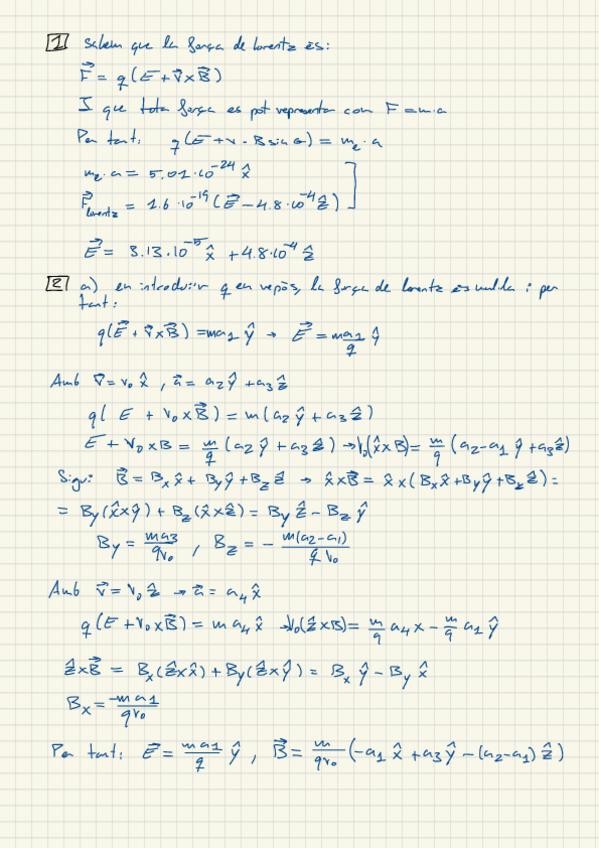 1 Sabem que la força de Lorentz és:
F⃗ = q(E⃗ + v⃗ x B⃗)
I que tota força es pot representar com F = m·a
Per tant: q(E + v · B sin θ) = m_e · a
m_e · a = 5.01·10^-24 x̂
F⃗_lorentz = 1.6·10^-19 (E⃗ - 4.8·10^-4 ẑ)
E⃗ = 3.13·10^-5 x̂ + 4.8·10^-4 ẑ
2 a) en introduir q en repòs, la força de lorentz és nul·la i per
tant:
q(E⃗ + v⃗ x B⃗) = ma₁ ŷ → E⃗ = ma₁/q ŷ
Amb v⃗ = v₀ x̂, a⃗ = a₂ŷ + a₃ẑ
q(E + v₀ x B⃗) = m(a₂ŷ + a₃ẑ)
E + v₀ x B = m/q (a₂ŷ + a₃ẑ) → v₀(x̂ x B) = m/q (a₂ - a₁ ŷ + a₃ẑ)
Sigui: B⃗ = Bₓx̂ + B_yŷ + B_zẑ → x̂ x B⃗ = x̂ x (Bₓx̂ + B_yŷ + B_zẑ) =
= B_y(x̂ x ŷ) + B_z(x̂ x ẑ) = B_y ẑ - B_z ŷ
B_y = ma₃/qv₀, B_z = - m(a₂-a₁)/q v₀
Amb v⃗ = v₀ẑ → a⃗ = a₄x̂
q(E + v₀ x B⃗) = m a₄x̂ → v₀(ẑ x B) = m/q a₄x - m/q a₁ŷ
ẑ x B⃗ = Bₓ(ẑ x x̂) + B_y(ẑ x ŷ) = Bₓ ŷ - B_y x̂
Bₓ = -ma₁/qv₀
Per tant: E⃗ = ma₁/q ŷ, B⃗ = m/qv₀ (-a₁ x̂ + a₃ŷ - (a₂-a₁) ẑ)